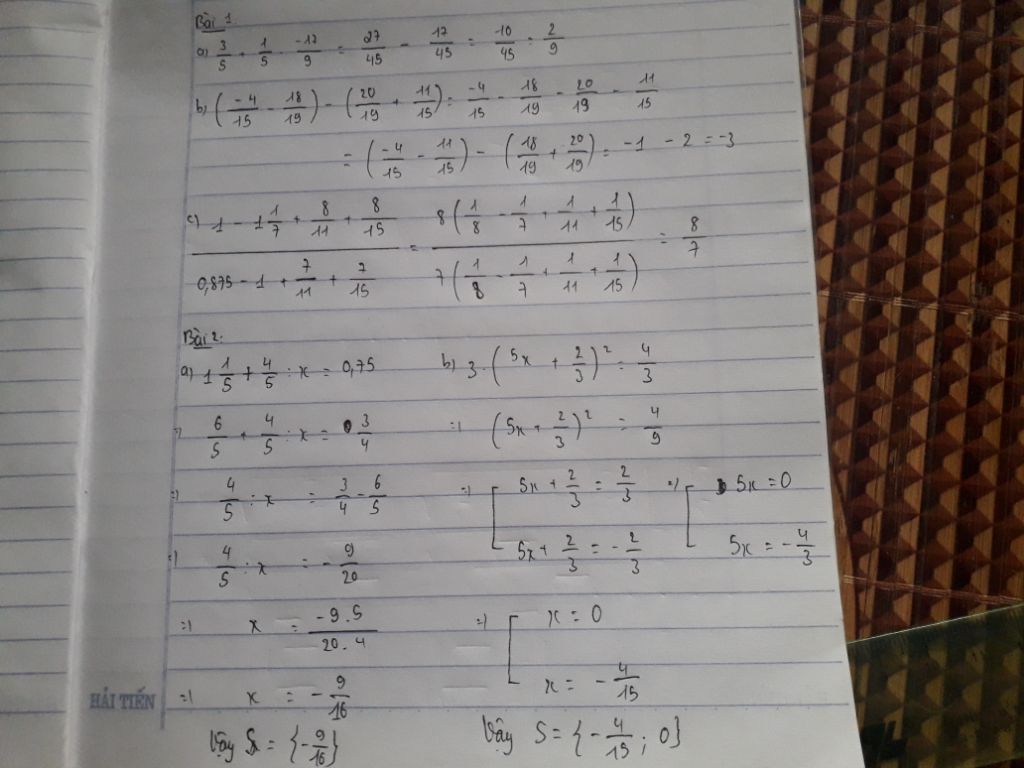 Bài 1.
a) 3/5 + 1/5 . -17/9 = 27/45 - 17/45 = 10/45 = 2/9
b) (-4/15 - 18/19) - (20/19 + 11/15) = -4/15 - 18/19 - 20/19 - 11/15
= (-4/15 - 11/15) - (18/19 + 20/19) = -1 - 2 = -3
c) (1 - 1 1/7 + 8/11 + 8/15) / (0,875 - 1 + 7/11 + 7/15) = 8(1/8 - 1/7 + 1/11 + 1/15) / 7(1/8 - 1/7 + 1/11 + 1/15) = 8/7
Bài 2:
a) 1 1/5 + 4/5 : x = 0,75
6/5 + 4/5 : x = 3/4
=) 4/5 : x = 3/4 - 6/5
=) 4/5 : x = -9/20
=) x = -9.5/20.4
=) x = -9/16
Vậy S = {-9/16}
b) 3.(5x + 2/3)² = 4/3
=) (5x + 2/3)² = 4/9
=) [ 5x + 2/3 = 2/3 =) [ 5x = 0
5x + 2/3 = -2/3 5x = -4/3
=) [ x = 0
x = -4/15
Vậy S = {-4/15 ; 0}
HẢI TIẾN